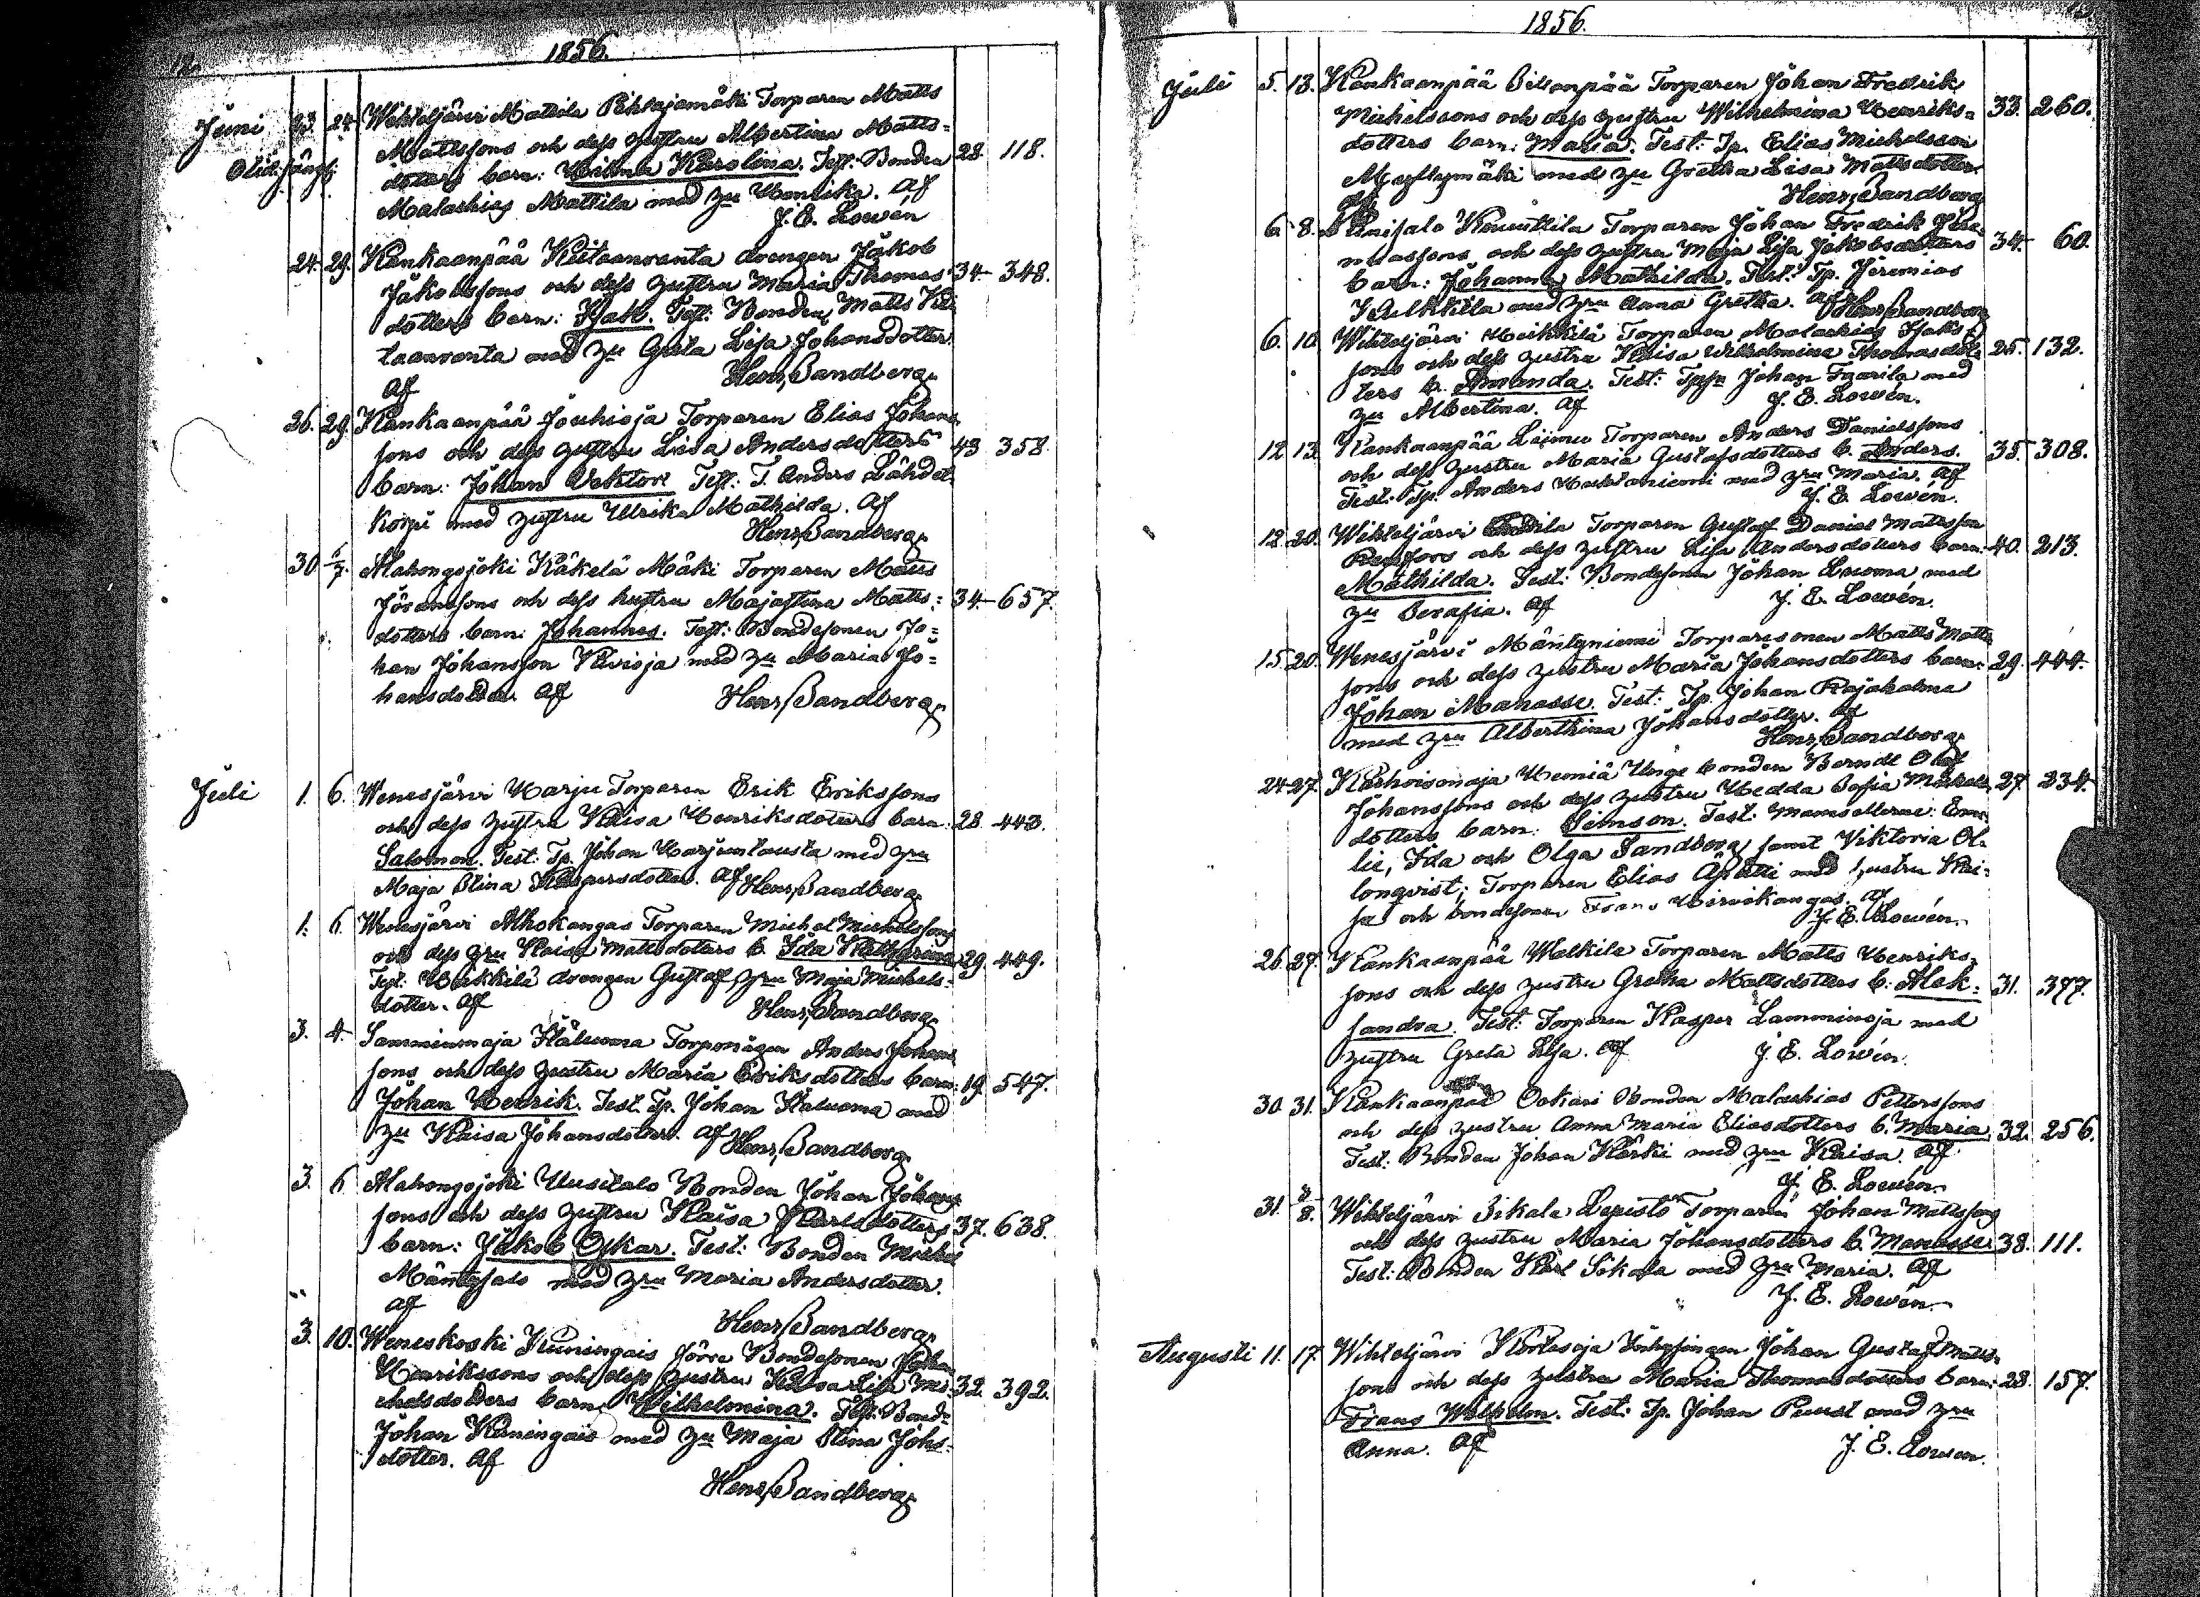 12.
1856.
Juni 23. 24. Wihteljärvi Mattila Pihlajamäki Torparen Matts
Mattssons och dess hustru Albertina Matts=
dotters barn: Wilma Karolina. Test: Bonden 28. 118.
Malachias Mattila med hu Henrika. Af
J. E. Lowén
24. 29. Kankaanpää Kiitaanranta drengen Jakob
Jakobssons och dess hustru Maria Thomas 34 348.
dotters barn: Isak. Test: Bonden Matts Kii
taanranta med hu Greta Lisa Johansdotter.
Af Henr. Sandberg
26. 29. Kankaanpää Jouhioja Torparen Elias Johans
sons och dess hustru Lisa Andersdotters 43 358
barn: Johan Vektor. Test: T. Anders Lähdet
korpi med hustru Ulrika Mathilda. Af
Henr. Sandberg
30 6/7. Alahongojoki Käkelä Mäki Torparen Matts
Jöranssons och dess hustru Majastina Matts= 34 657.
dotters barn: Johannes. Test: Bondesonen Jo=
han Johansson Kivioja med hu Maria Jo=
hansdotter. Af Henr. Sandberg
Juli 1. 6. Wenesjärvi Harju Torparen Erik Erikssons
och dess hustru Kaisa Henriksdotters barn: 28 443.
Salomon. Test: Tp. Johan Harjuntausta med hru
Maja Stina Kaspersdotter. Af Henr. Sandberg
1. 6 Wenesjärvi Alhokangas Torparen Michel Michelssons
och dess hru Kaisa Mattsdotters b. Ida Katharina 29. 449.
Test: Heikkilä drengen Gustaf, hru Maja Michels=
dotter. Af Henr. Sandberg
3. 4. Samminmaja Kaluoma Torpmågen Anders Johans
sons och dess hustru Maria Eriksdotters barn: 19 547.
Johan Henrik. Test. Tp. Johan Kaluoma med
hu Kaisa Johansdotter. Af Henr. Sandberg
3. 6 Alahongojoki Uusitalo Bonden Johan Johans
sons och dess hustru Kaisa Karlsdotters 37. 638.
barn: Jakob Oskar. Test: Bonden Michel
Mäntysalo med hru Maria Andersdotter.
Af
Henr. Sandberg
3. 10. Weneskoski Kuningais Jörre Bondesonen Johan
Henrikssons och dess hustru Eva Lisa Mi= 32. 392.
chelsdotters barn Wilhelmina. Test. Bond=
Johan Kuningais med hu Maja Stina Johs=
dotter. Af
Henr. Sandberg
1856.
Juli 5. 13. Kankaanpää Torparen Johan Fredrik
Michelssons och dess hustru Wilhelmina Henriks= 33. 260.
dotters barn: Maria. Test: Tp. Elias Michelsson
Myllymäki med hu Gretha Lisa Mattsdotter
Af Henr. Sandberg
6 8. Raisalo Knuuttila Torparen Johan Fredrik Jere=
miassons och dess hustru Maja Lisa Jakobsdotters 34. 60.
barn: Johanna Mathilda. Test: Tp. Jeremias
med hru Anna Gretha. Af Henr. Sandberg
6. 10 Wihteljärvi Heikkilä Torparen Malachias Isaks=
sons och dess hustru Kaisa Wilhelmina Thomasdot= 25. 132.
ters b. Amanda. Test: Johan Faarila med
hu Albertina. Af J. E. Lowén.
12 13. Kankaanpää Luomu Torparen Anders Danielssons
och dess hustru Maria Gustafsdotters b. Anders. 35. 308.
Test: Tp. Anders Huhtaniemi med hru Maria. Af
J. E. Lowén.
12 20. Wihteljärvi Torparen Gustaf Daniel Mattsson
Renfors och dess hustru Lisa Andersdotters barn: 40. 213.
Mathilda. Test: Bondesonen Johan Luoma med
hu Serafia. Af J. E. Lowén.
15 20. Wenesjärvi Mäntyniemi Torparesonen Matts Matts
sons och dess hustru Maria Johansdotters barn: 29. 444.
Johan Manasse. Test: Tp. Johan Rajakalma
med hru Alberthina Johansdotter. Af
Henr. Sandberg
24 27. Karhoismaja Heiniä Unge bonden Berndt Olof
Johanssons och dess hustru Hedda Sofia Michels 27. 234.
dotters barn: Simson. Test: Mamsellerne: Emi=
lie, Ida och Olga Sandberg samt Viktoria Ol=
lonqvist; Torparen Elias Äpätti med hustru Kai=
sa och bondesonen Frans Hirvikangas. Af
J. E. Lowén.
26 27. Kankaanpää Walkila Torparen Matts Henriks=
sons och dess hustru Gretha Mattsdotters b: Alek= 31. 377.
sandra. Test: Torparen Kasper Lamminoja med
hustru Greta Lisa. Af J. E. Lowén.
30 31. Kankaanpää Ookari Bonden Malachias Petterssons
och dess hustru Anna Maria Eliasdotters b. Maria 32. 256.
Test: Bonden Johan Kärki med hru Kaisa. Af
J. E. Lowén.
31. 3/8. Wihteljärvi Sikala Lepistö Torparen Johan Mattssons
och dess hustru Maria Johansdotters b. Manasse 38. 111.
Test: Bonden Karl Sikala med hru Maria. Af
J. E. Lowén.
Augusti 11. 17 Wihteljärvi Kortesoja Johan Gustaf Matts=
sons och dess hustru Maria Thomasdotters barn: 28. 157.
Frans Wilhelm. Test: Tp. Johan Puust med hru
Anna. Af J. E. Lowen.